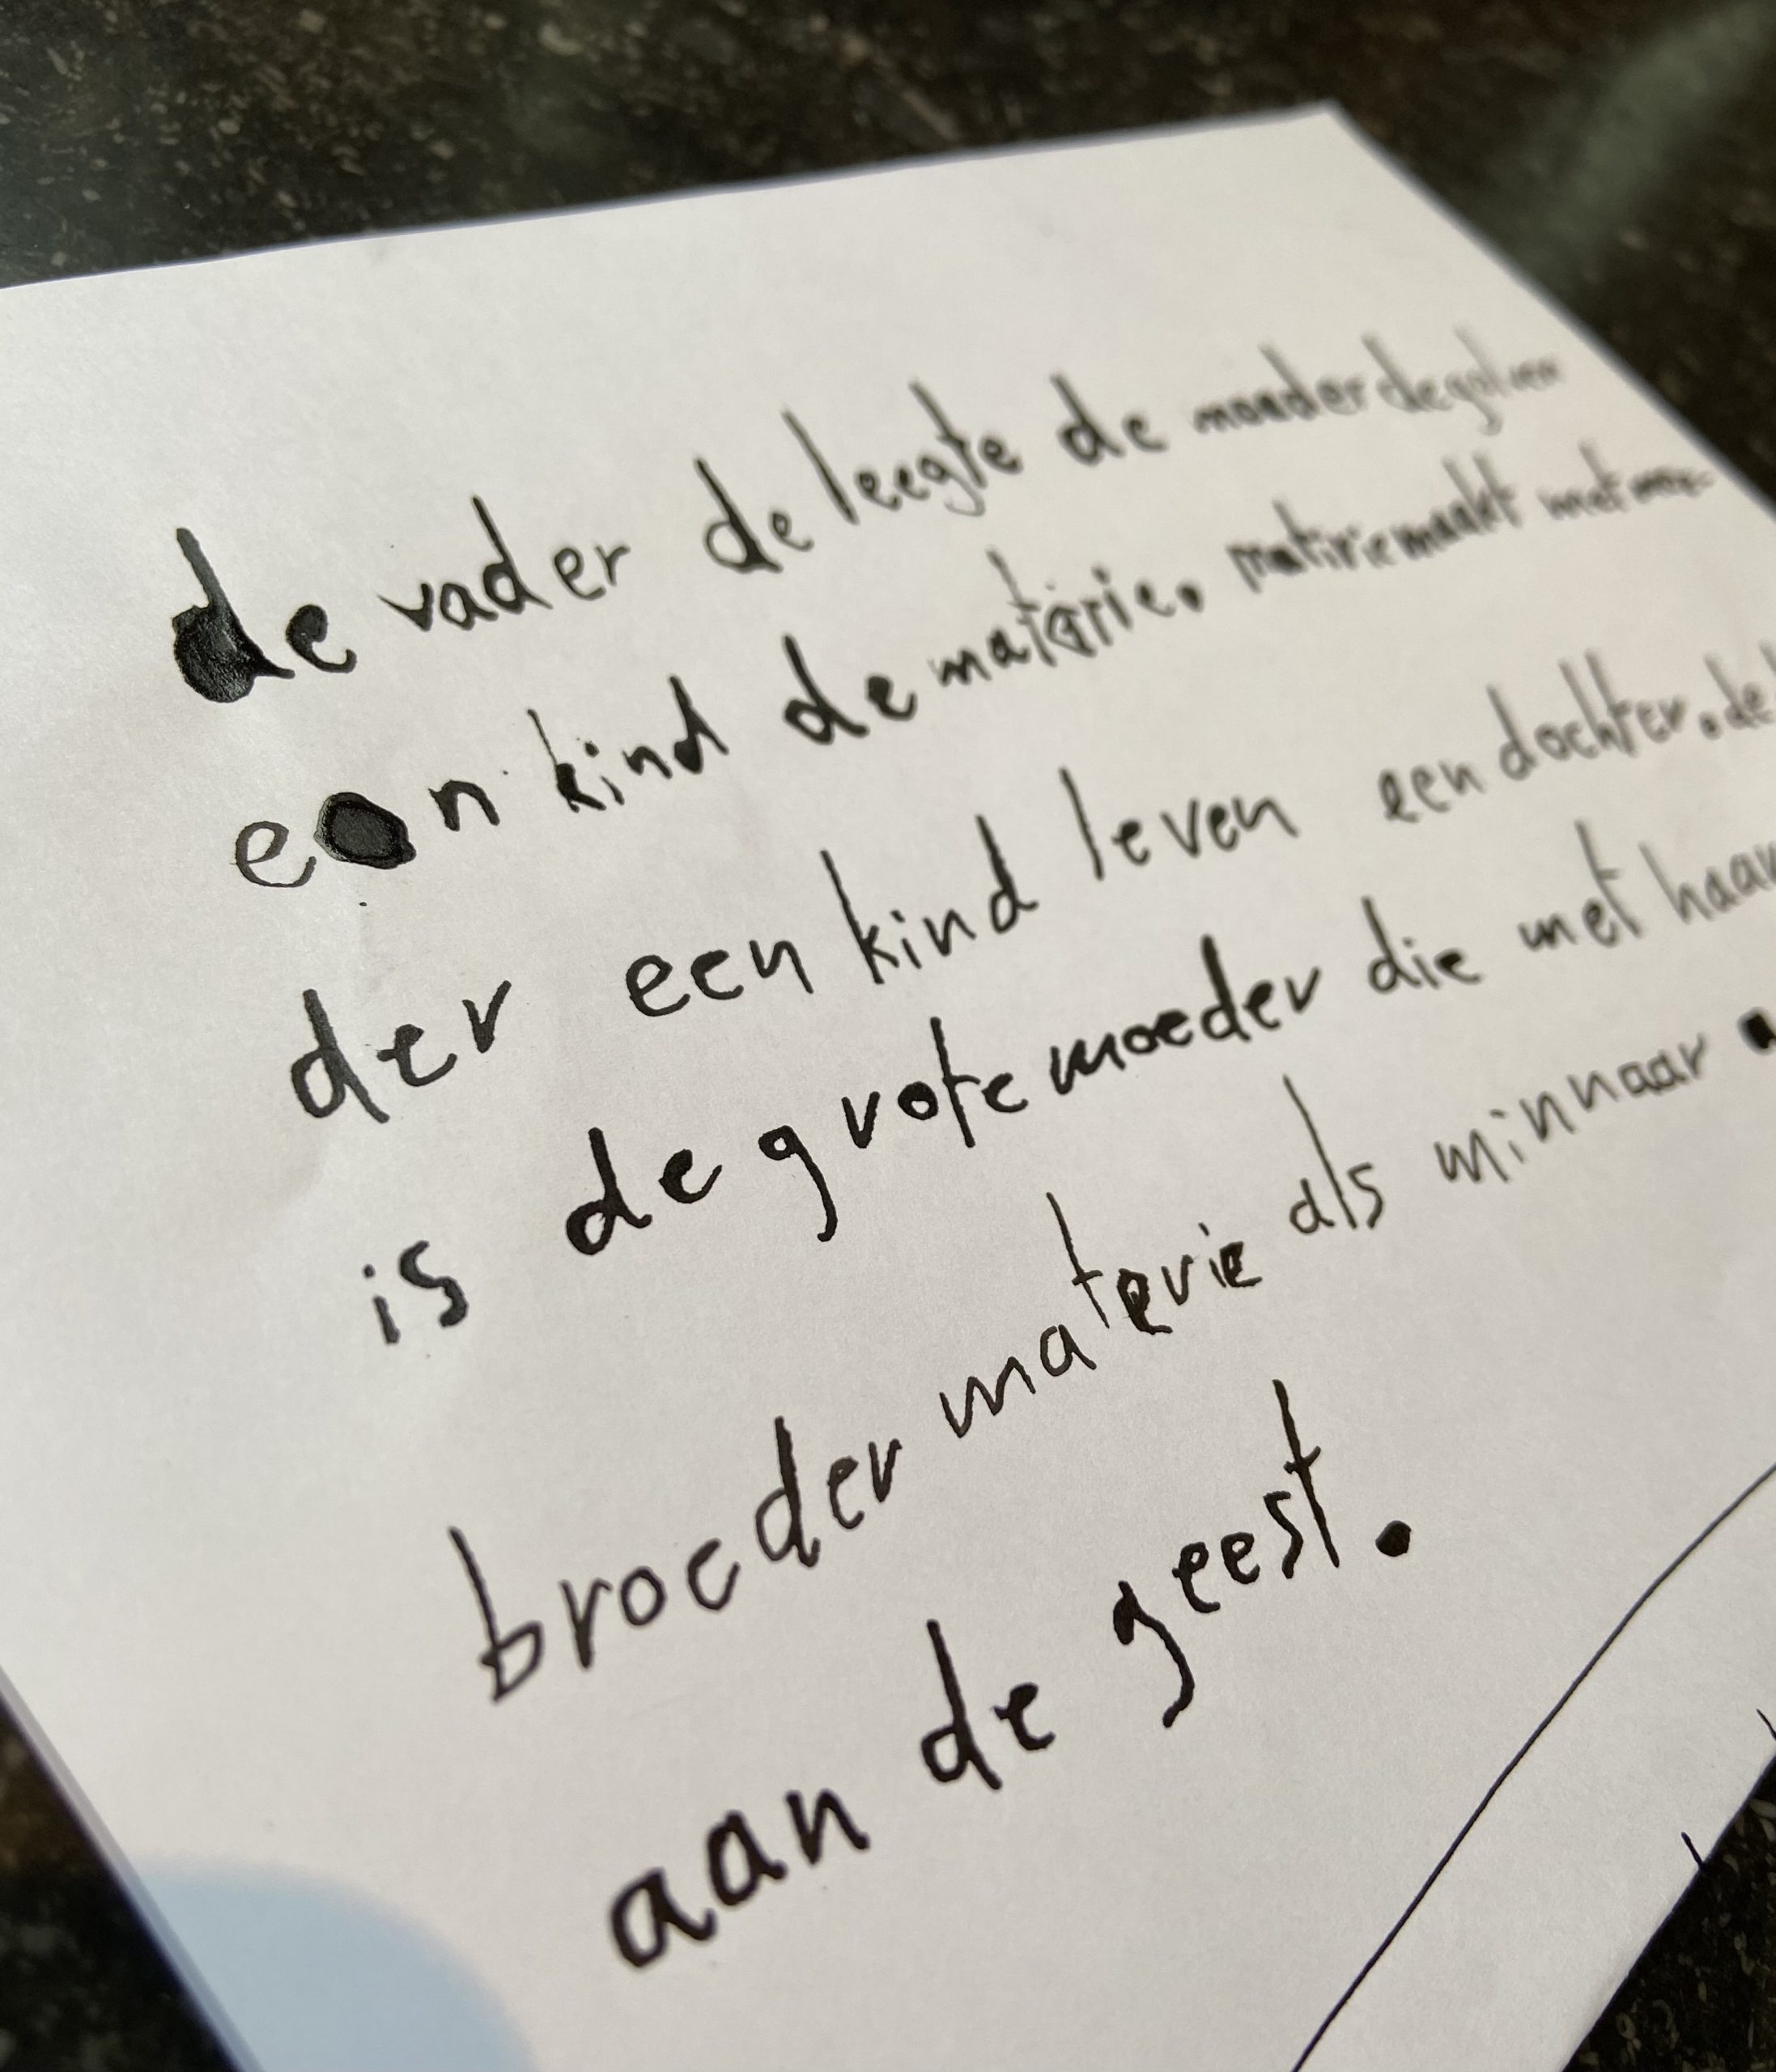 de vader de leegte de moeder de golven
een kind de materie. materie maakt met moe-
der een kind leven een dochter. de
is de grote moeder die met haar
broeder materie als minnaar
aan de geest.